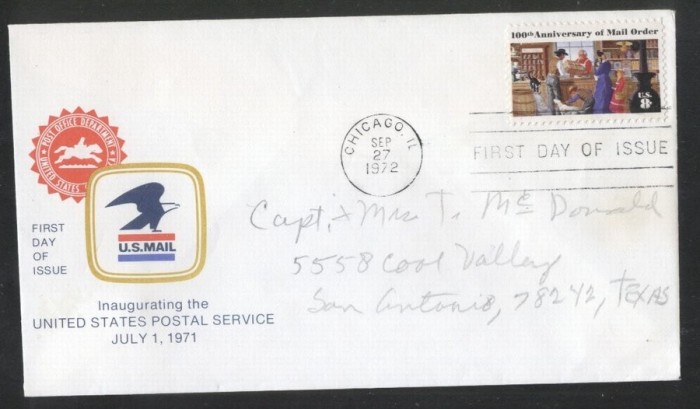 100th Anniversary of Mail Order
U.S.
8c
CHICAGO, IL
SEP
27
1972
FIRST DAY OF ISSUE
POST OFFICE DEPARTMENT
UNITED STATES
FIRST
DAY
OF
ISSUE
U.S.MAIL
Inaugurating the
UNITED STATES POSTAL SERVICE
JULY 1, 1971
Capt. & Mrs. T. McDonald
5558 Cool Valley
San Antonio, 78242, Texas